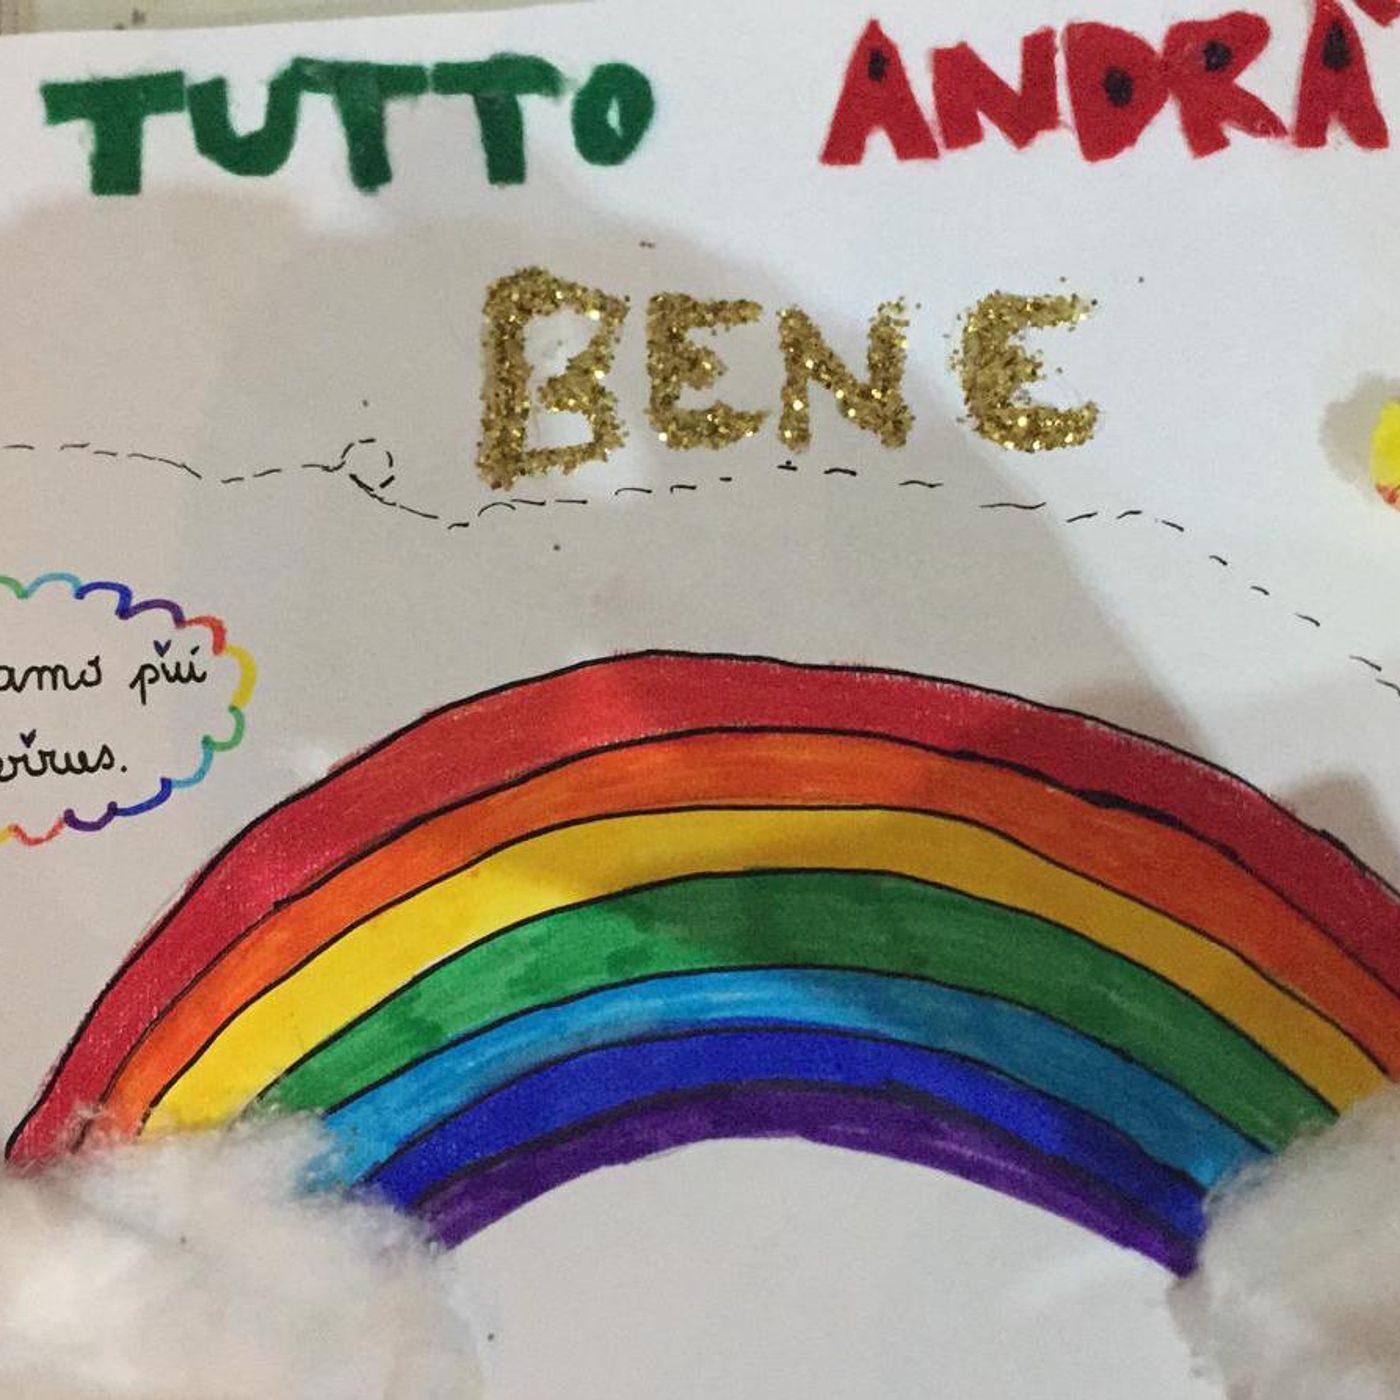 TUTTO ANDRÀ
BENE
amo più
virus.